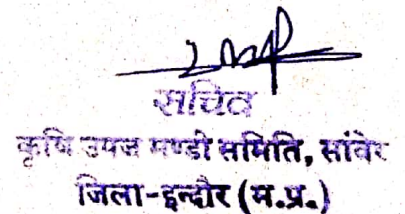 सचिव
कृषि उपज मण्डी समिति, सांवेर
जिला-इन्दौर (म.प्र.)